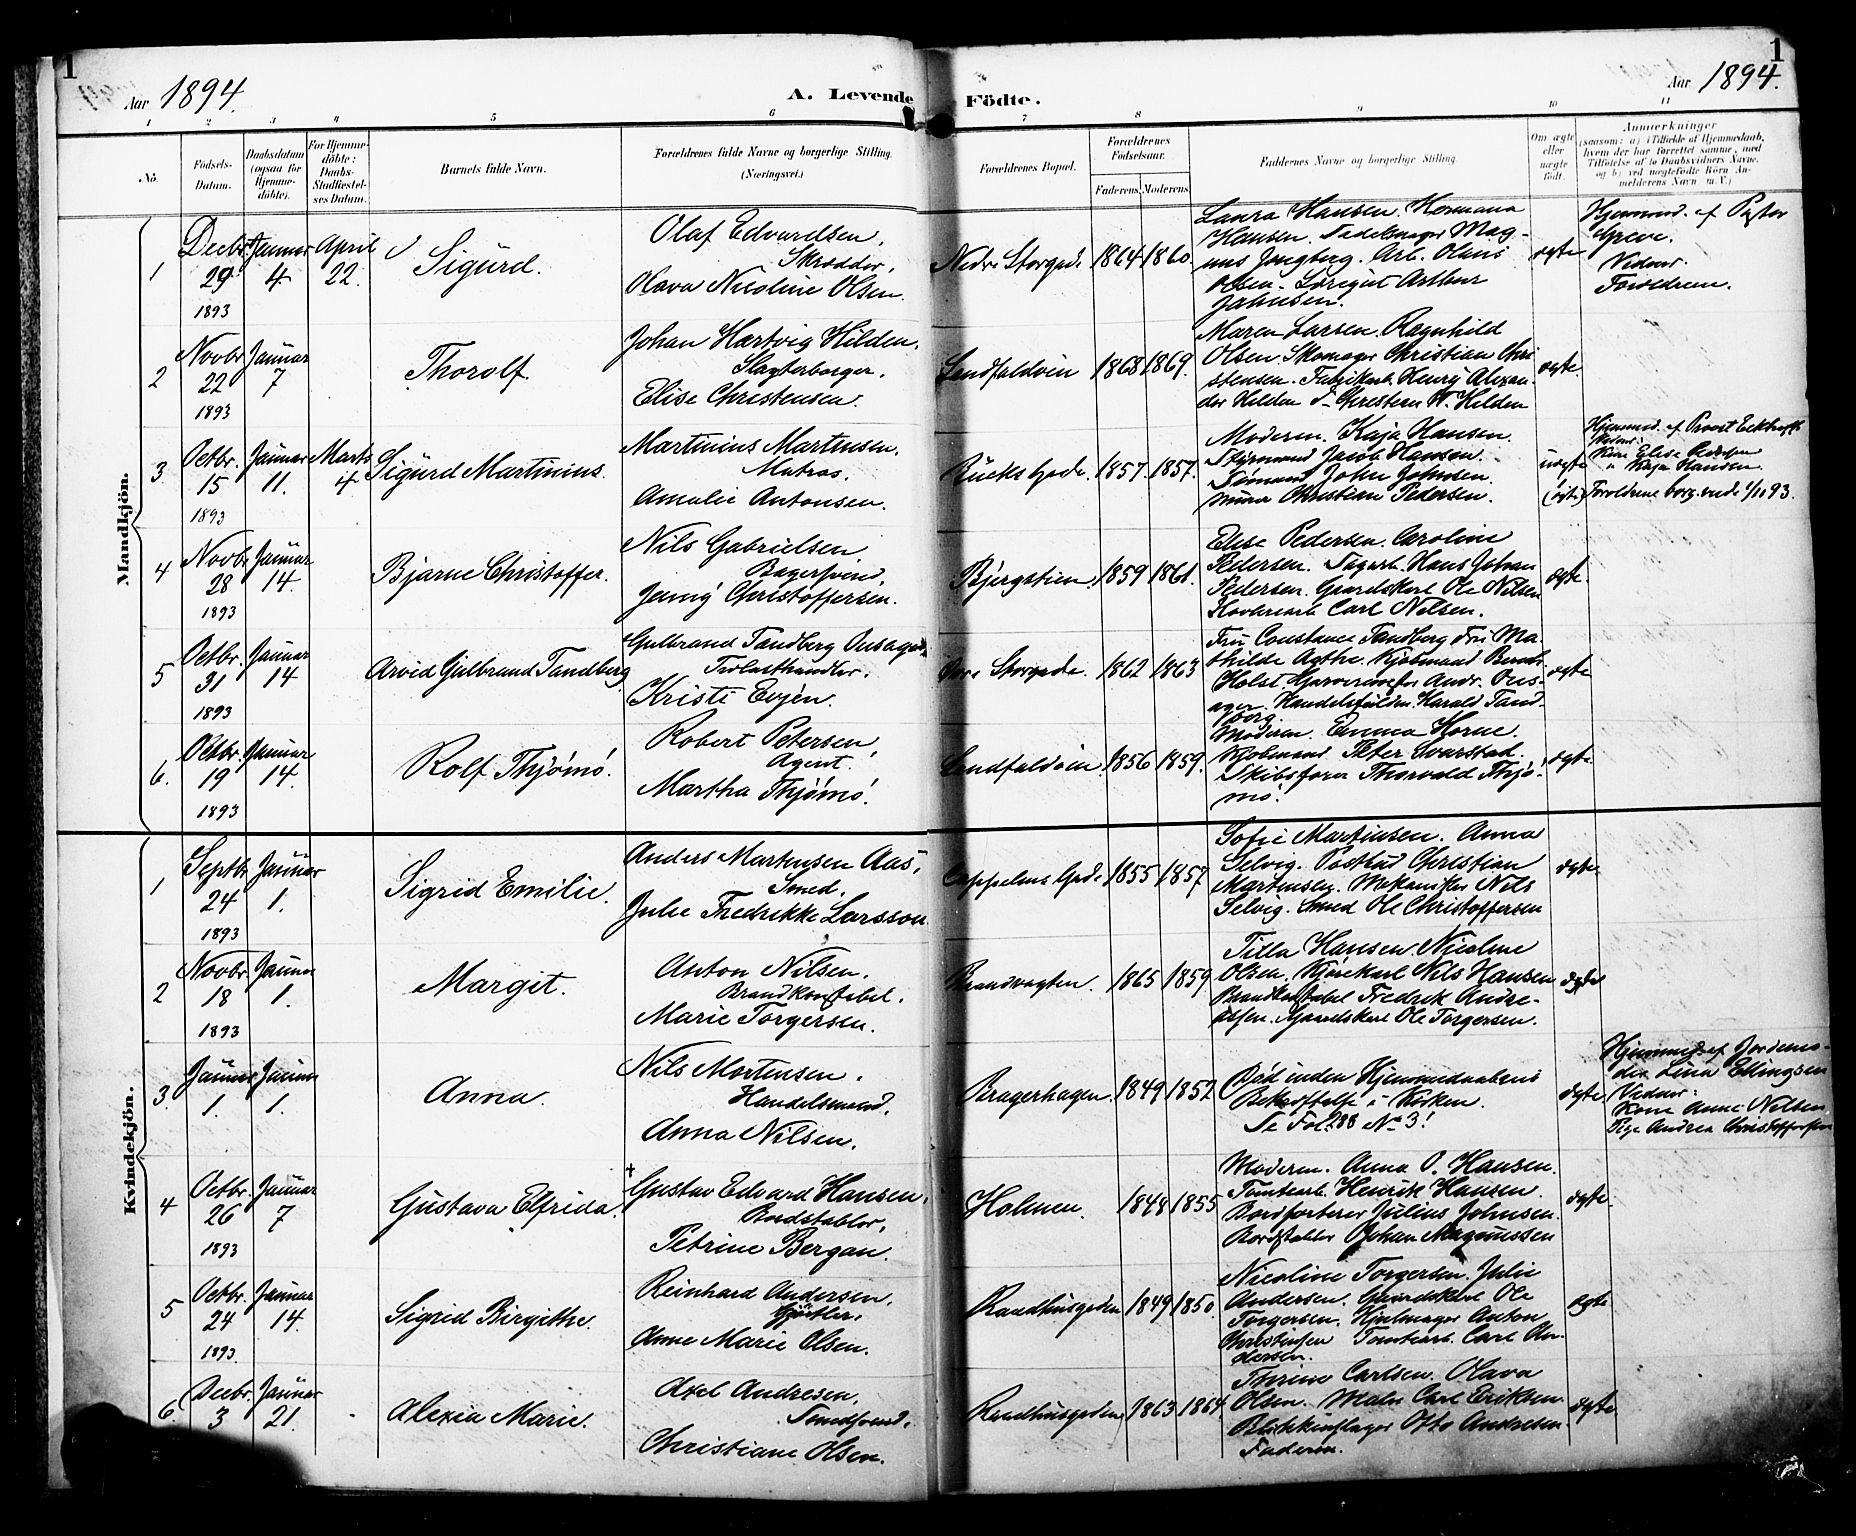 1
1
Aar 1894.
A. Levende Födte.
Aar 1894.
1 2 3 4 5 6 7 8 9 10 11
No.
Födsels-Datum.
Daabsdatum (ogsaa for Hjemmedöbte).
For Hjemmedöbte: Daabs-Stadfæstelses Datum.
Barnets fulde Navn.
Forældrenes fulde Navne og borgerlige Stilling.
(Næringsvei.)
Forældrenes Bopæl.
Forældrenes Födselsaar.
Faderens. Moderens.
Faddernes Navne og borgerlige Stilling.
Om ægte eller uægte födt.
Anmærkninger
(saasom: a) i Tilfælde af Hjemmedaab,
hvem der har forrettet samme, med
Tilföielse af to Daabsvidners Navne,
og b) ved uægtefödte Börn Anmelderens Navn m. V.)
Mandkjön.
1
Decbr. 29 1893
Januar 4.
April 22.
Sigurd.
Olaf Edvardsen,
Skrædder,
Olava Nicoline Olsen.
Nedre Storgade.
1864 1860.
Laura Hansen. Hermana
Hansen. Mag-
nus Arb. Olaus
Olsen. Arthur
Johnsen.
ægte
Hjemmed. af Pastor
Greve.
Vidner:
Forældrene.
2
Novbr. 22 1893
Januar 7
Thorolf.
Johan Hartvig Hilden,
Slagterborger,
Elise Christensen.
Landfaldöien
1868 1869.
Maren Larsen. Ragnhild
Olsen. Skomager Christian Chri-
stensen. Fabrikarb. Henry Alexan-
der Hilden W. Hilden
ægte.
3
Octbr. 15 1893
Januar 11.
Marts 4
Sigurd Martinius.
Martinius Martinsen,
Matros,
Amalie Antonsen.
1857. 1857.
Moderen. Kaja Hansen.
Jacob Hansen.
John Johnsen.
Christian Pedersen.
uægte
Hjemmed. af Provst
Vidner:
Elise Pedersen
Kaja Hansen.
Forældrene borg. viede 93.
4
Novbr. 28 1893
Januar 14.
Bjarne Christoffer.
Nils Gabrielsen,
Bagersvend,
Jenny Christoffersen.
Bjergstien.
1859 1861.
Elise Pedersen. Caroline
Pedersen. Hans Johan
Pedersen. Gaardskarl Ole Nilsen
Carl Nilsen.
ægte.
5
Octbr. 31 1893
Januar 14
Arvid Gulbrand Tandberg
Gulbrand Tandberg Onsager,
Trælasthandler,
Kristi Evjen.
Övre Storgade.
1862 1863
Fru Constance Tandberg Fru Ma-
thilde Agthe. Kjöbmand Bernh.
Holst. Andr. Ons-
ager. Handelsfuldm. Harald Tand-
berg.
ægte
6.
Octbr. 19 1893
Januar 14.
Rolf Thjömö.
Robert Petersen,
Agent.
Martha Thjömö.
Landfaldöien
1856 1859.
Moderen. Emma Horne.
Kjöbmand Peter Svarstad.
Skibsförer Thorvald Thjö-
mö.
ægte
Kvindekjön.
1
Septbr. 24 1893
Januar 1.
Sigrid Emilie.
Anders Martinsen Aas,
Smed,
Julie Fredrikke Larsson
Cappelens Gade
1855 1857
Sofie Martinsen. Anna
Selvig. Postbud Christian
Martinsen. Mekaniker Nils
Selvig. Smed Ole Christoffersen
ægte.
2
Novbr. 18 1893
Januar 1.
Margit.
Anton Nilsen,
Brandkonstabel,
Marie Torgersen.
Brandvagten.
1865 1859
Tilla Hansen. Nicoline
Olsen. Kjörekarl Nils Hansen
Brandkonstabel Fredrik Andre-
assen. Gaardskarl Ole Torgersen.
ægte
3.
Januar 1.
Januar 1.
Anna.
Nils Mortensen,
Handelsmand,
Anna Nilsen.
Bragerhagen.
1849 1852
Död inden Hjemmedaabens
Bekræftelse i Kirken.
Se Fol. 288 No 3!
ægte
Hjemmed. af Jordemo-
der Lina Ellingsen
Vidner:
Kone Anne Nilsen
Pige Andrea Christoffersen
4
Octbr. 26 1893
Januar 7
Gustava Elfrida.
+ Gustav Edvard Hansen,
Bordstabler,
Petrine Bergan.
Holmen.
1848 1855
Moderen. Anna O. Hansen.
Tomtearb. Henrik Hansen.
Bordsorterer Julius Johnsen.
Bordstabler Johan Magnussen
ægte
5
Octbr. 24 1893.
Januar 14.
Sigrid Birgithe.
Reinhard Andersen,
Gjörtler,
Anne Marie Olsen.
Raadhusgaden
1849 1850
Nicoline Torgersen. Julie
Andersen. Gaardskarl Ole
Torgersen. Hjulmager Anton
Christensen Tomtearb. Carl An-
dersen.
ægte
6
Decbr. 3
Januar 21.
Alexia Marie.
Axel Andresen,
Smedsvend,
Christiane Olsen.
Raadhusgaden
1863 1864
Thrine Carlsen. Olava
Olsen. Maler Carl Eriksen.
Blikkenslager Otto Andresen
Faderen.
ægte